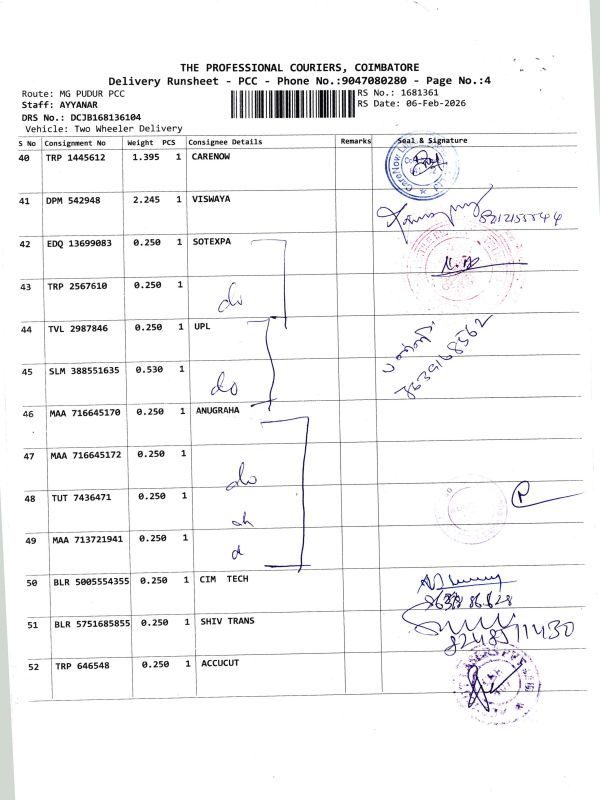 THE PROFESSIONAL COURIERS, COIMBATORE
Delivery Runsheet - PCC - Phone No.:9047080280 - Page No.:4
Route: MG PUDUR PCC RS No.: 1681361
Staff: AYYANAR RS Date: 06-Feb-2026
DRS No.: DCJB168136104
Vehicle: Two Wheeler Delivery
S No Consignment No Weight PCS Consignee Details Remarks Seal & Signature
40 TRP 1445612 1.395 1 CARENOW
41 DPM 542948 2.245 1 VISWAYA
42 EDQ 13699083 0.250 1 SOTEXPA
43 TRP 2567610 0.250 1 do
44 TVL 2987846 0.250 1 UPL
8639168562
45 SLM 388551635 0.530 1 do
46 MAA 716645170 0.250 1 ANUGRAHA
47 MAA 716645172 0.250 1 do
48 TUT 7436471 0.250 1
49 MAA 713721941 0.250 1
50 BLR 5005554355 0.250 1 CIM TECH
51 BLR 5751685855 0.250 1 SHIV TRANS 8248571430
52 TRP 646548 0.250 1 ACCUCUT